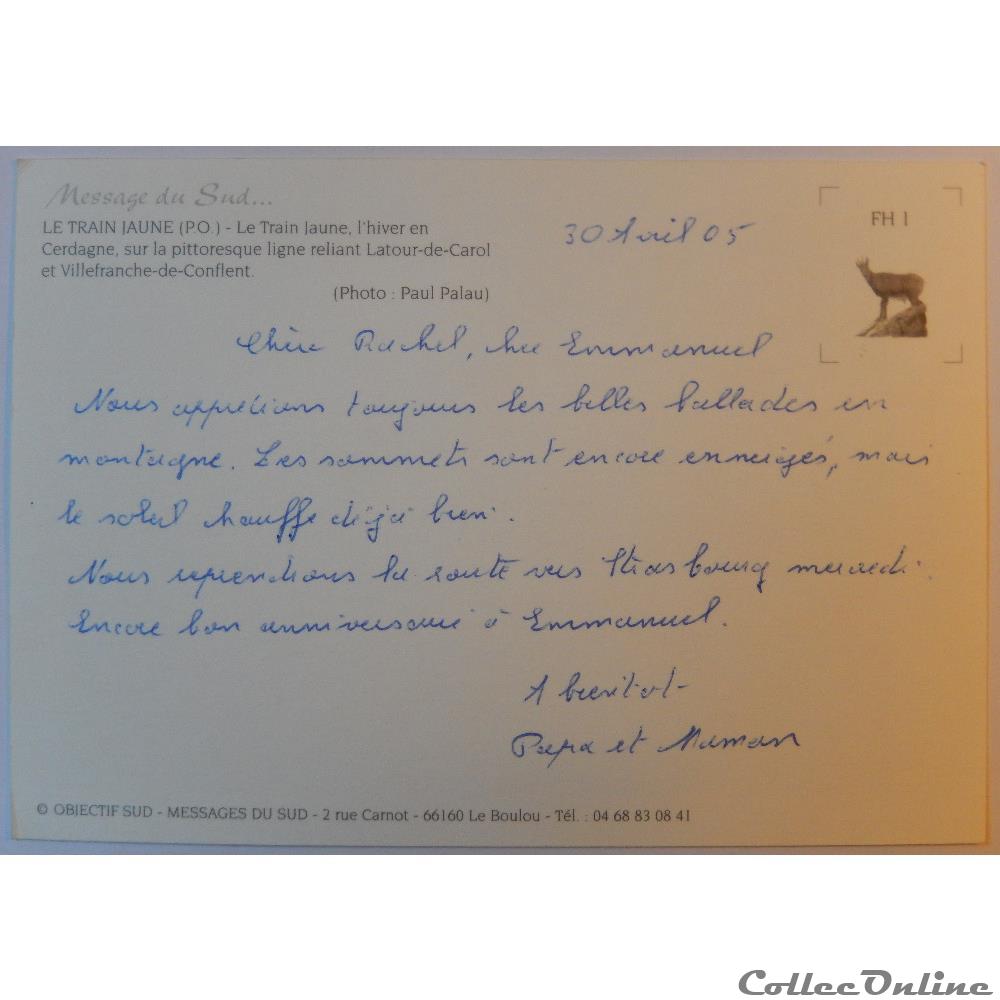 Message du Sud...
LE TRAIN JAUNE (P.O.) - Le Train Jaune, l'hiver en
Cerdagne, sur la pittoresque ligne reliant Latour-de-Carol
et Villefranche-de-Conflent.
(Photo : Paul Palau)
FH 1
30 Avril 05
Chère Rachel, cher Emmanuel
Nous apprécions toujours les belles ballades en
montagne. Les sommets sont encore enneigés, mais
le soleil chauffe déjà bien.
Nous reprendrons la route vers Strasbourg mercredi.
Encore bon anniversaire à Emmanuel.
A bientôt
Papa et Maman
© OBJECTIF SUD - MESSAGES DU SUD - 2 rue Carnot - 66160 Le Boulou - Tél. : 04 68 83 08 41
CollecOnline